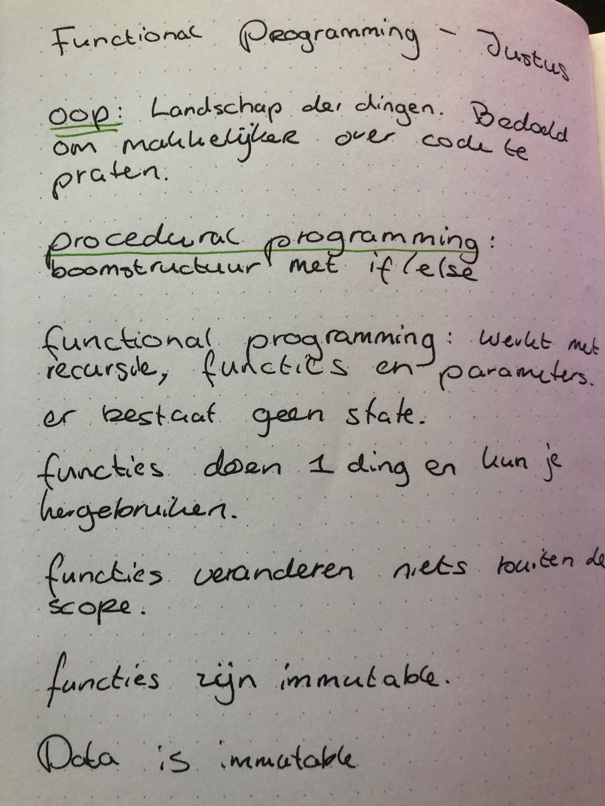 Functional Programming - Justus
oop: Landschap der dingen. Bedoeld
om makkelijker over code te
praten.
procedural programming:
boomstructuur met if/else
functional programming: werkt met
recursie, functies en parameters.
er bestaat geen state.
functies doen 1 ding en kun je
hergebruiken.
functies veranderen niets buiten de
scope.
functies zijn immutable.
Data is immutable